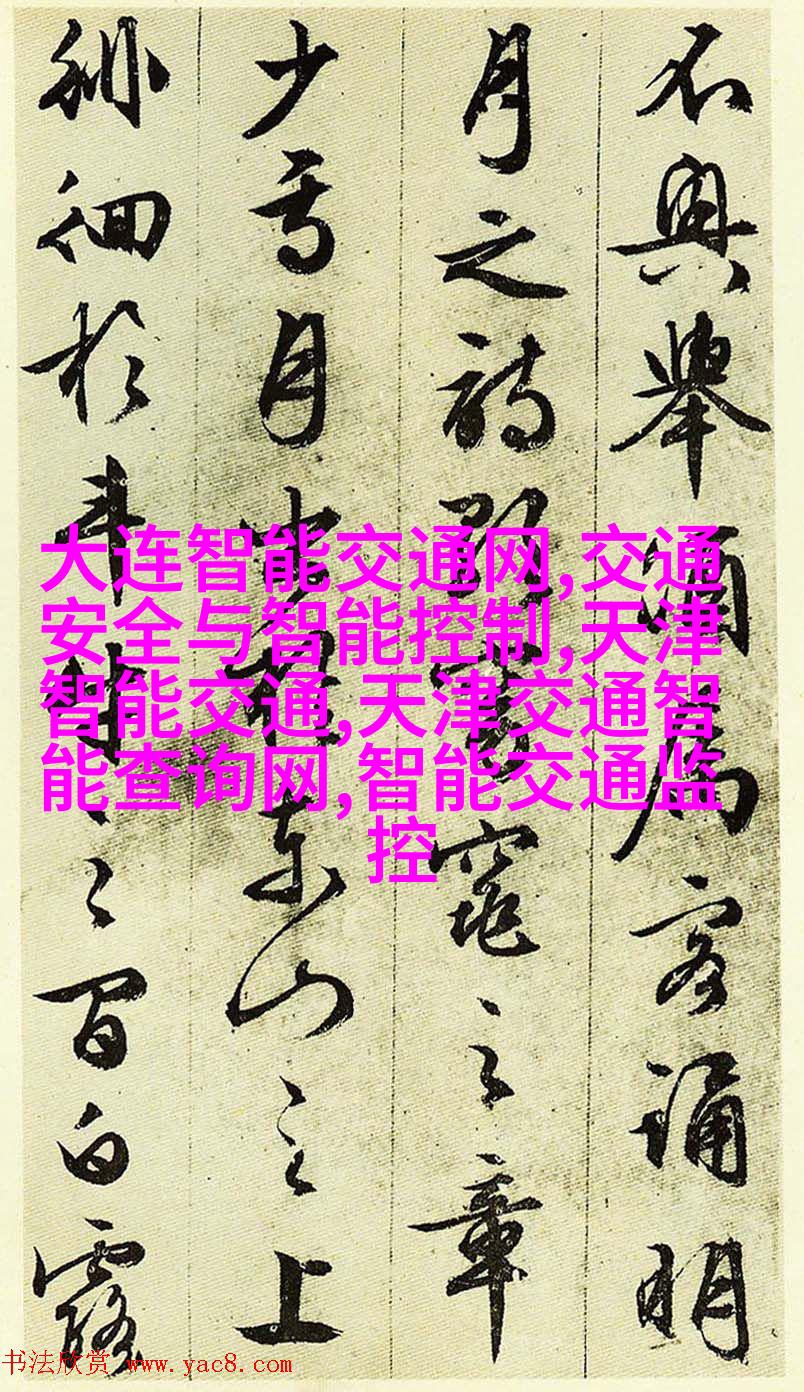 不興舉酒屬客誦明
月之詩歌窈窕之章
少焉月出於東山之上
徘徊於斗牛之間白露
大连智能交通网,交通
安全与智能控制,天津
智能交通,天津交通智
能查询网,智能交通监
控
书法欣赏 www.yac8.com